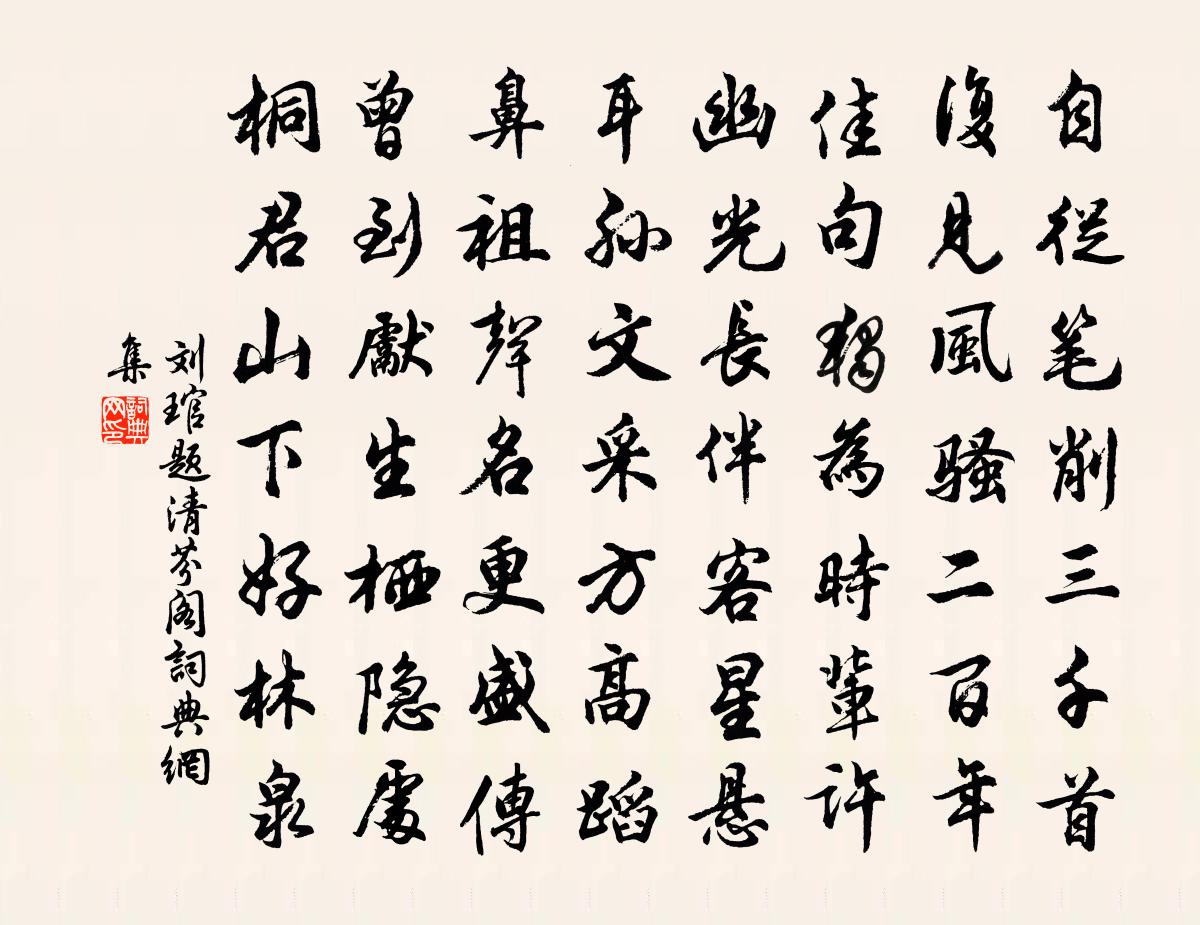 自從笔削三千首
復见風騷二百年
佳句獨為時輩許
幽光長伴客星懸
耳孙文采方高蹈
鼻祖聲名更盛傳
曾到獻生栖隐處
桐君山下好林泉
刘琯题清芬阁詞典網
集
詞典
网印